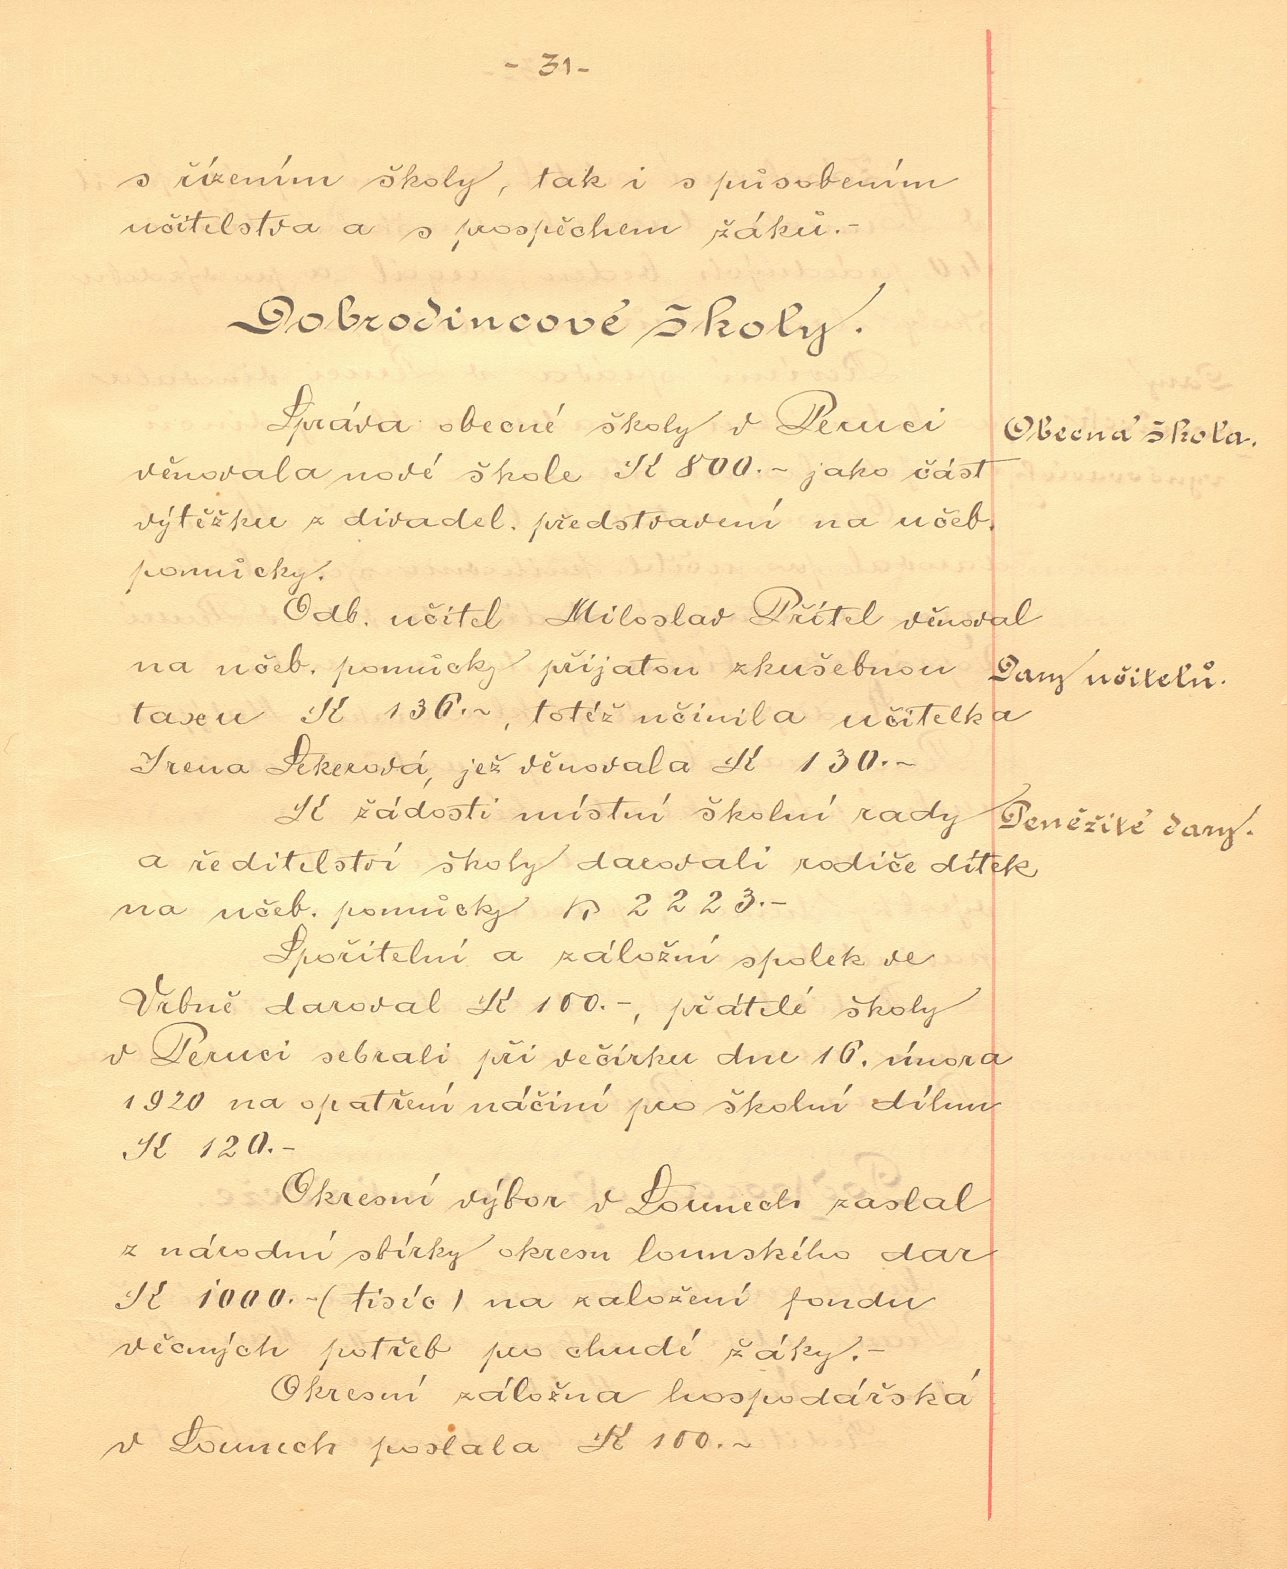 - 31 -
s řízením školy, tak i s působením
učitelstva a s prospěchem žáků.-
Dobrodincové školy.
Správa obecné školy v Peruci
Obecná škola.
věnovala nové škole K 800.- jako část
výtěžku z divadel. představení na učeb.
pomůcky.
Odb. učitel Miloslav Přítel věnoval
na učeb. pomůcky přijatou zkušebnou
Dary učitelů.
taxu K 136.-, totéž učinila učitelka
Irena Sekerová, jež věnovala K 130.-
K žádosti místní školní rady
Peněžité dary.
a ředitelství školy darovali rodiče dítek
na učeb. pomůcky K 2223.-
Spořitelní a záložní spolek ve
Vrbně daroval K 100.-, přátelé školy
v Peruci sebrali při večírku dne 16. února
1920 na opatření náčiní pro školní dílnu
K 120.-
Okresní výbor v Lounech zaslal
z národní sbírky okresu lounského dar
K 1000.- (tisíc) na založení fondu
věcných potřeb pro chudé žáky.-
Okresní záložna hospodářská
v Lounech poslala K 100.-